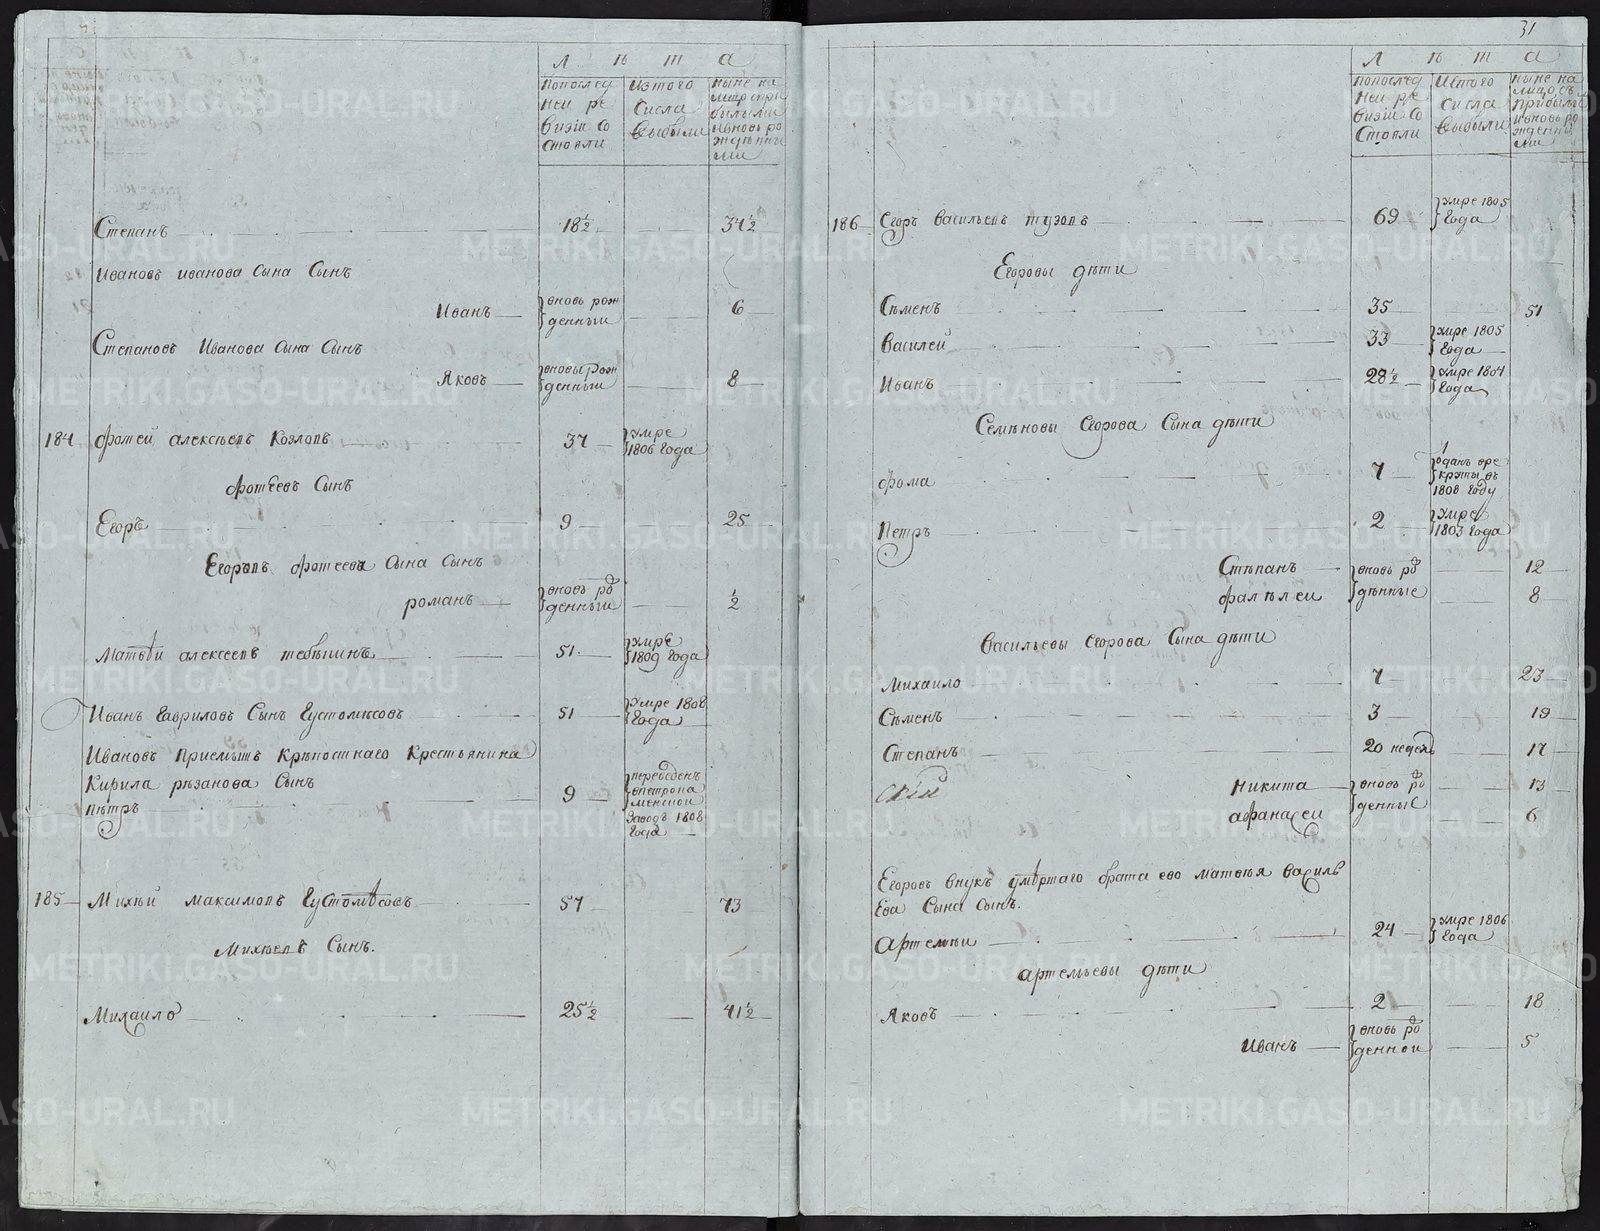 Л ѣ т а
Попослед ней ре визiи со стояли
Изтого Числа Выбыли
ныне на лицо спри былыми ивновь ро жденны ми
Степанъ 18½ 34½
Ивановъ иванова Сына Сынъ
Иванъ вновь рож денный 6
Степановъ Иванова Сына Сынъ
Яковъ вновь рож денный 8
184 Фотей алексеевъ Козловъ 37 умре 1806 года
Фотеевъ Сынъ
Егоръ 9 25
Егоровъ Фотеева Сына Сынъ
романъ вновь ро денный ½
Матвей алексеевъ 51 умре 1809 года
Иванъ Гавриловъ Сынъ Густомесовъ 51 умре 1808 года
Ивановъ Приемышъ Крѣпостнаго Крестьянина
Кирила рѣзанова Сынъ
Пѣтръ 9 переведенъ
Заводъ 1808 года
185 Михѣй максимовъ Густомѣсовъ 57 73
Михѣевъ Сынъ.
Михаило 25½ 41½
31
Л ѣ т а
Попослед ней ре визiи со стояли
Изтого Числа Выбыли
ныне на лицо съ прибыл ивновь ро жденны ми
186 Егоръ Васильевъ тузовъ 69 умре 1805 года
Егоровы дѣти
Сѣменъ 35 51
Василей 33 умре 1805 года
Иванъ 28½ умре 1804 года
Семѣновы Егорова Сына дѣти
Фома 7 оданъ вре круты въ 1808 году
Петръ 2 умре 1803 года
Стѣпанъ вновь ро 12
Фалѣлеи дѣнные 8
Васильевы Егорова Сына дѣти
Михаило 7 23
Сѣменъ 3 19
Степанъ 20 недель 17
Никита вновь ро 13
афанасеи денные 6
Егоровъ Внукъ умѣртаго брата ево матвея Василь
Ева Сына Сынъ.
Артемеи 24 умре 1806 года
артемьевы дѣти
Яковъ 2 18
Иванъ вновь ро денной 5
METRIKI.GASO-URAL.RU